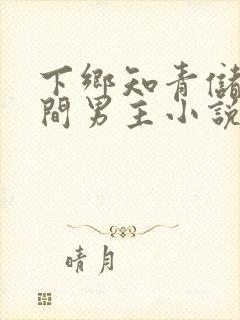 下鄉知青儲
間男主小說
晴月